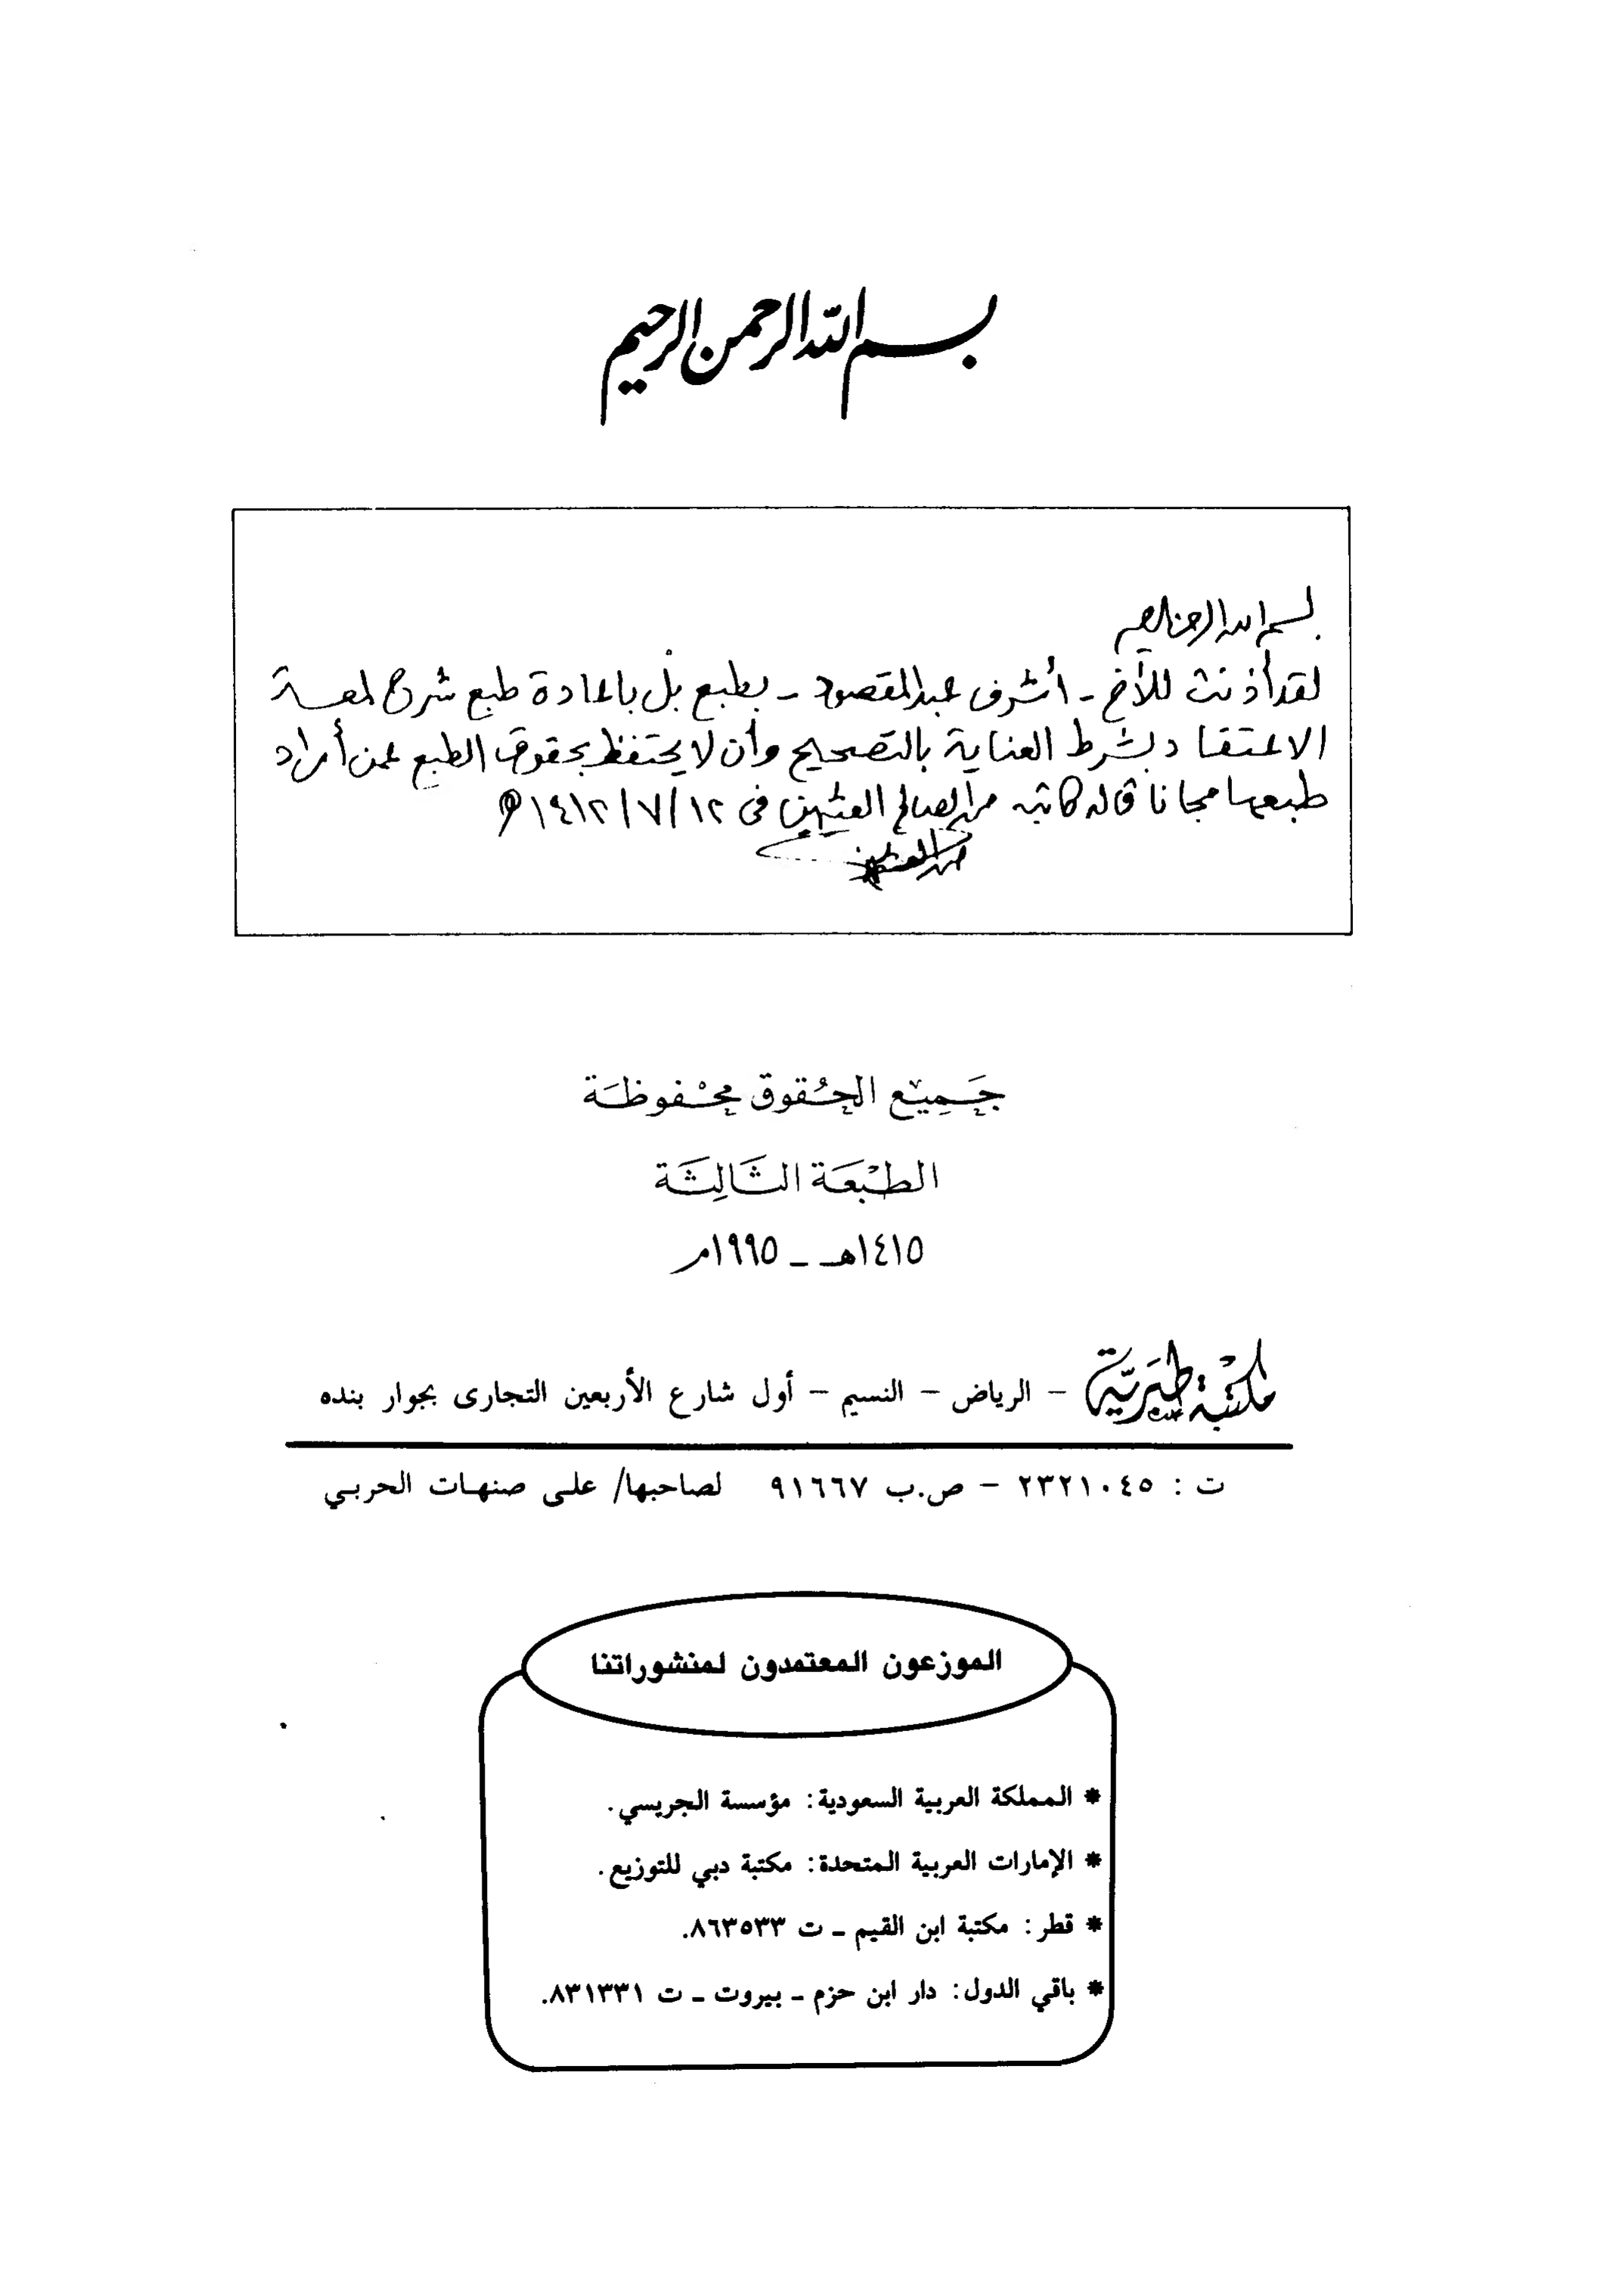 بسم الله الرحمن الرحيم
بسم الله الرحمن الرحيم
لقد أذنت للأخ - أشرف عبد المقصود - بطبع بل بإعادة طبع شرح لمعة
الاعتقاد بشرط العناية بالتصحيح وأن لا يحتفظ بحقوق الطبع عمن أراد
طبعها مجانا قاله كاتبه محمد الصالح العثيمين في ١٤١٢/٧/١٢هـ
محمد العثيمين
جَمِيْع الحُقوق مَحْفوظَة
الطبْعَة الثَّالِثَة
١٤١٥هـ ـ ١٩٩٥م
مكتبة طبرية - الرياض - النسيم - أول شارع الأربعين التجارى بجوار بنده
ت : ٢٣٢١٠٤٥ - ص.ب ٩١٦٦٧ لصاحبها/ على صنهات الحربي
الموزعون المعتمدون لمنشوراتنا
* المملكة العربية السعودية: مؤسسة الجريسي.
* الإمارات العربية المتحدة: مكتبة دبي للتوزيع.
* قطر: مكتبة ابن القيم ـ ت ٨٦٣٥٣٣.
* باقي الدول: دار ابن حزم ـ بيروت ـ ت ٨٣١٣٣١.